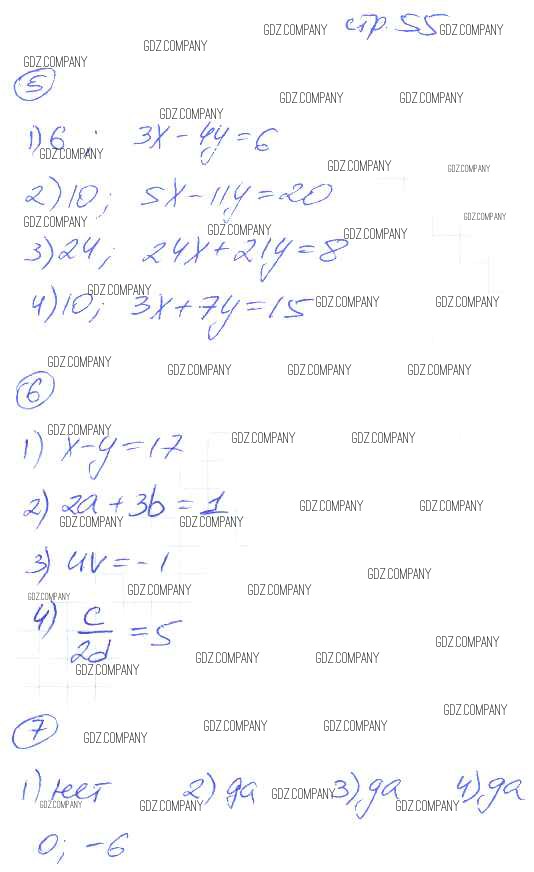 стр. 55
GDZ.COMPANY GDZ.COMPANY
GDZ.COMPANY
GDZ.COMPANY
5
GDZ.COMPANY GDZ.COMPANY
GDZ.COMPANY
1) 6 ; 3x - 4y = 6
GDZ.COMPANY
GDZ.COMPANY GDZ.COMPANY
2) 10; 5x - 11y = 20
GDZ.COMPANY GDZ.COMPANY GDZ.COMPANY GDZ.COMPANY
3) 24; 24x + 21y = 8
GDZ.COMPANY
4) 10; 3x + 7y = 15
GDZ.COMPANY GDZ.COMPANY
GDZ.COMPANY GDZ.COMPANY GDZ.COMPANY GDZ.COMPANY
6
GDZ.COMPANY GDZ.COMPANY GDZ.COMPANY
1) x - y = 17
2) 2a + 3b = 1
GDZ.COMPANY GDZ.COMPANY
GDZ.COMPANY GDZ.COMPANY
3) uv = -1
GDZ.COMPANY
GDZ.COMPANY GDZ.COMPANY GDZ.COMPANY
4) c/2d = 5
GDZ.COMPANY
GDZ.COMPANY GDZ.COMPANY
GDZ.COMPANY
GDZ.COMPANY
7
GDZ.COMPANY GDZ.COMPANY GDZ.COMPANY
1) нет 2) да 3) да 4) да
GDZ.COMPANY
GDZ.COMPANY GDZ.COMPANY GDZ.COMPANY
0; -6